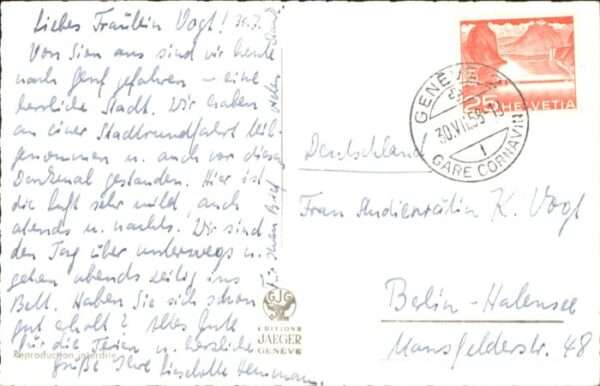 Liebes Fräulein Vogt! 30.7.
Von Sion aus sind wir heute
nach Genf gefahren – eine
herrliche Stadt. Wir haben
an einer Stadtrundfahrt teil-
genommen u. auch vor diesem
Denkmal gestanden. Hier ist
die Luft sehr mild, auch
abends u. nachts. Wir sind
den Tag über unterwegs u.
gehen abends zeitig ins
Bett. Haben Sie sich schon
gut erholt? Alles Gute
für die Ferien u. herzliche
Grüße Ihre Lieselotte
für Ihren Brief
Reproduction interdite
EDITIONS
JAEGER
GENÈVE
GENÈVE
30.VII.58
1
GARE CORNAVIN
25 HELVETIA
Deutschland
Frau Studienrätin K. Vogt
Berlin-Halensee
Mansfelderstr. 48